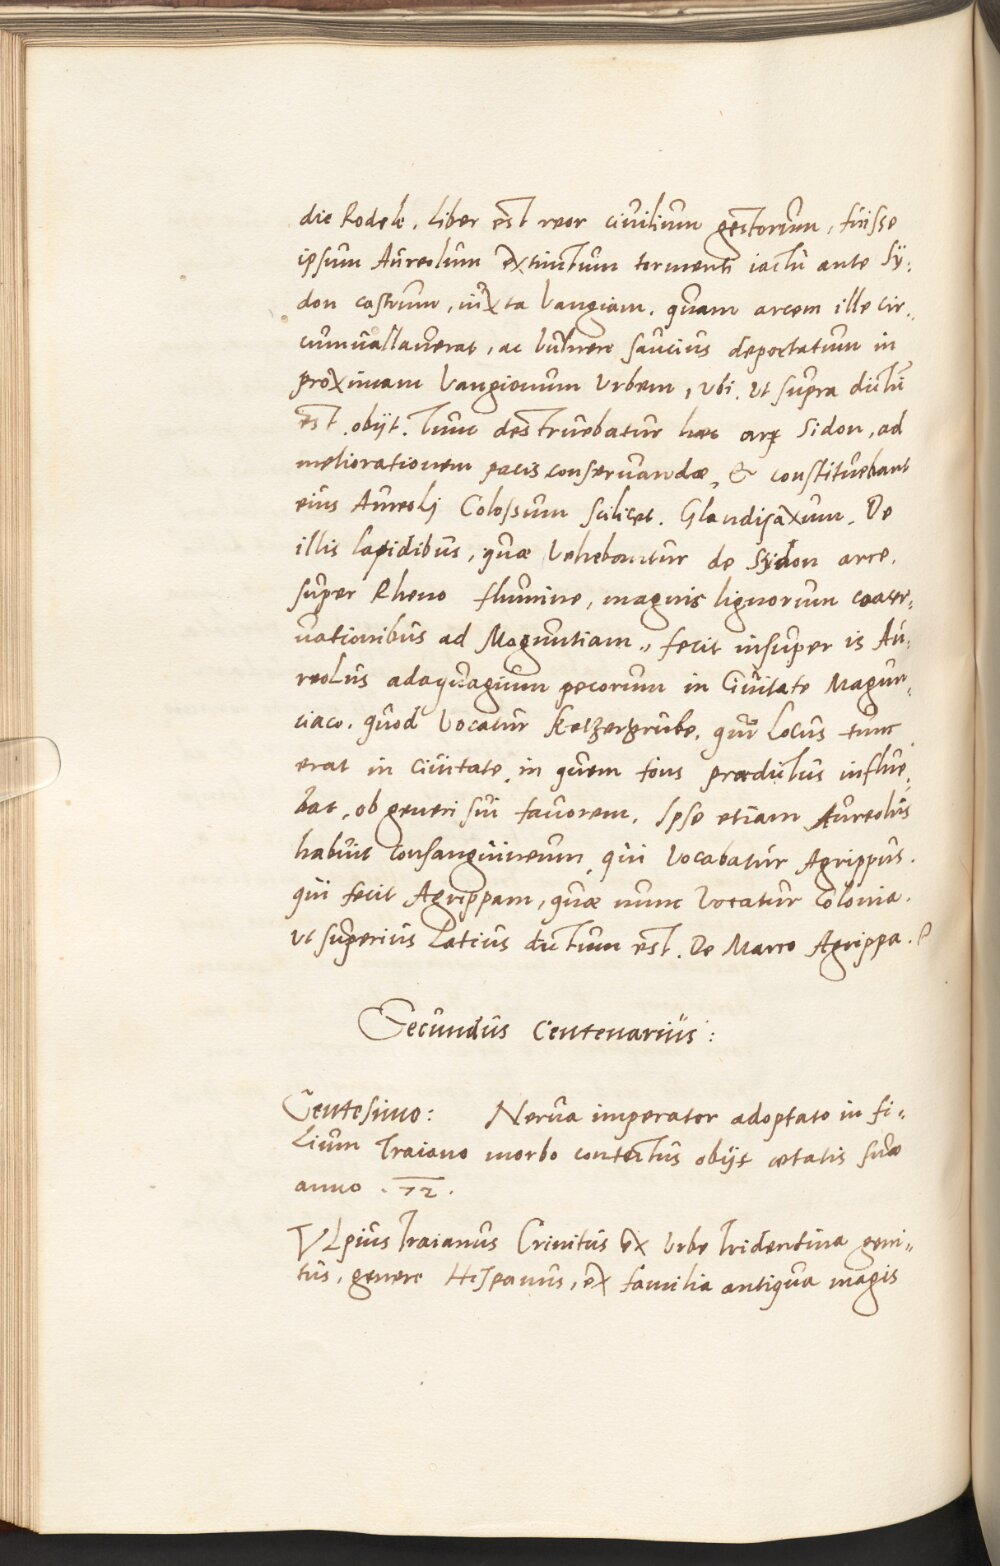 die Rodele. Liber est reor ciuilium gestorum, fuisse
ipsum Aureolum extinctum tormenti iactu ante Sy:
don castrum, iuxta Vangiam. quam arcem ille cir„
cumuallauerat, ac vulnere saucius deportatum in
proximam Vangionum Vrbem, vbi. vt supra dictũ
est. obijt. Tunc destruebatur haec arx Sidon, ad
meliorationem pacis conseruandæ, & constituebant
eius Aureolj Colossum scilicet. Glandisaxum. De
illis lapidibus, quæ Vehebantur de Sydon arce.
super Rheno flumine, magnis lignorum coacer„
uationibus ad Maguntiam„ fecit insuper is Au:
reolus adaquagium pecorum in Ciuitate Magun„
ciaco. quod Vocatur Ketzergrube. qui Locus tunc
erat in ciuitate, in quem fons prædictus influe„
bat, ob generi sui fauorem. Ipse etiam Aureolus
habuit consanguineum, qui Vocabatur Agrippus.
qui fecit Agrippam, quæ nunc Vocatur Colonia.
Vt superius Latius dictum est. De Marco Agrippa.
Secundus Centenarius:
Centesimo: Nerua imperator adoptato in fi„
Lium Traiano morbo contectus obijt ætatis suæ
anno . 72 .
VLpius Traianus Crinitus ex Vrbe Tridentina geni„
tus, genere Hispanus, ex familia antiqua magis